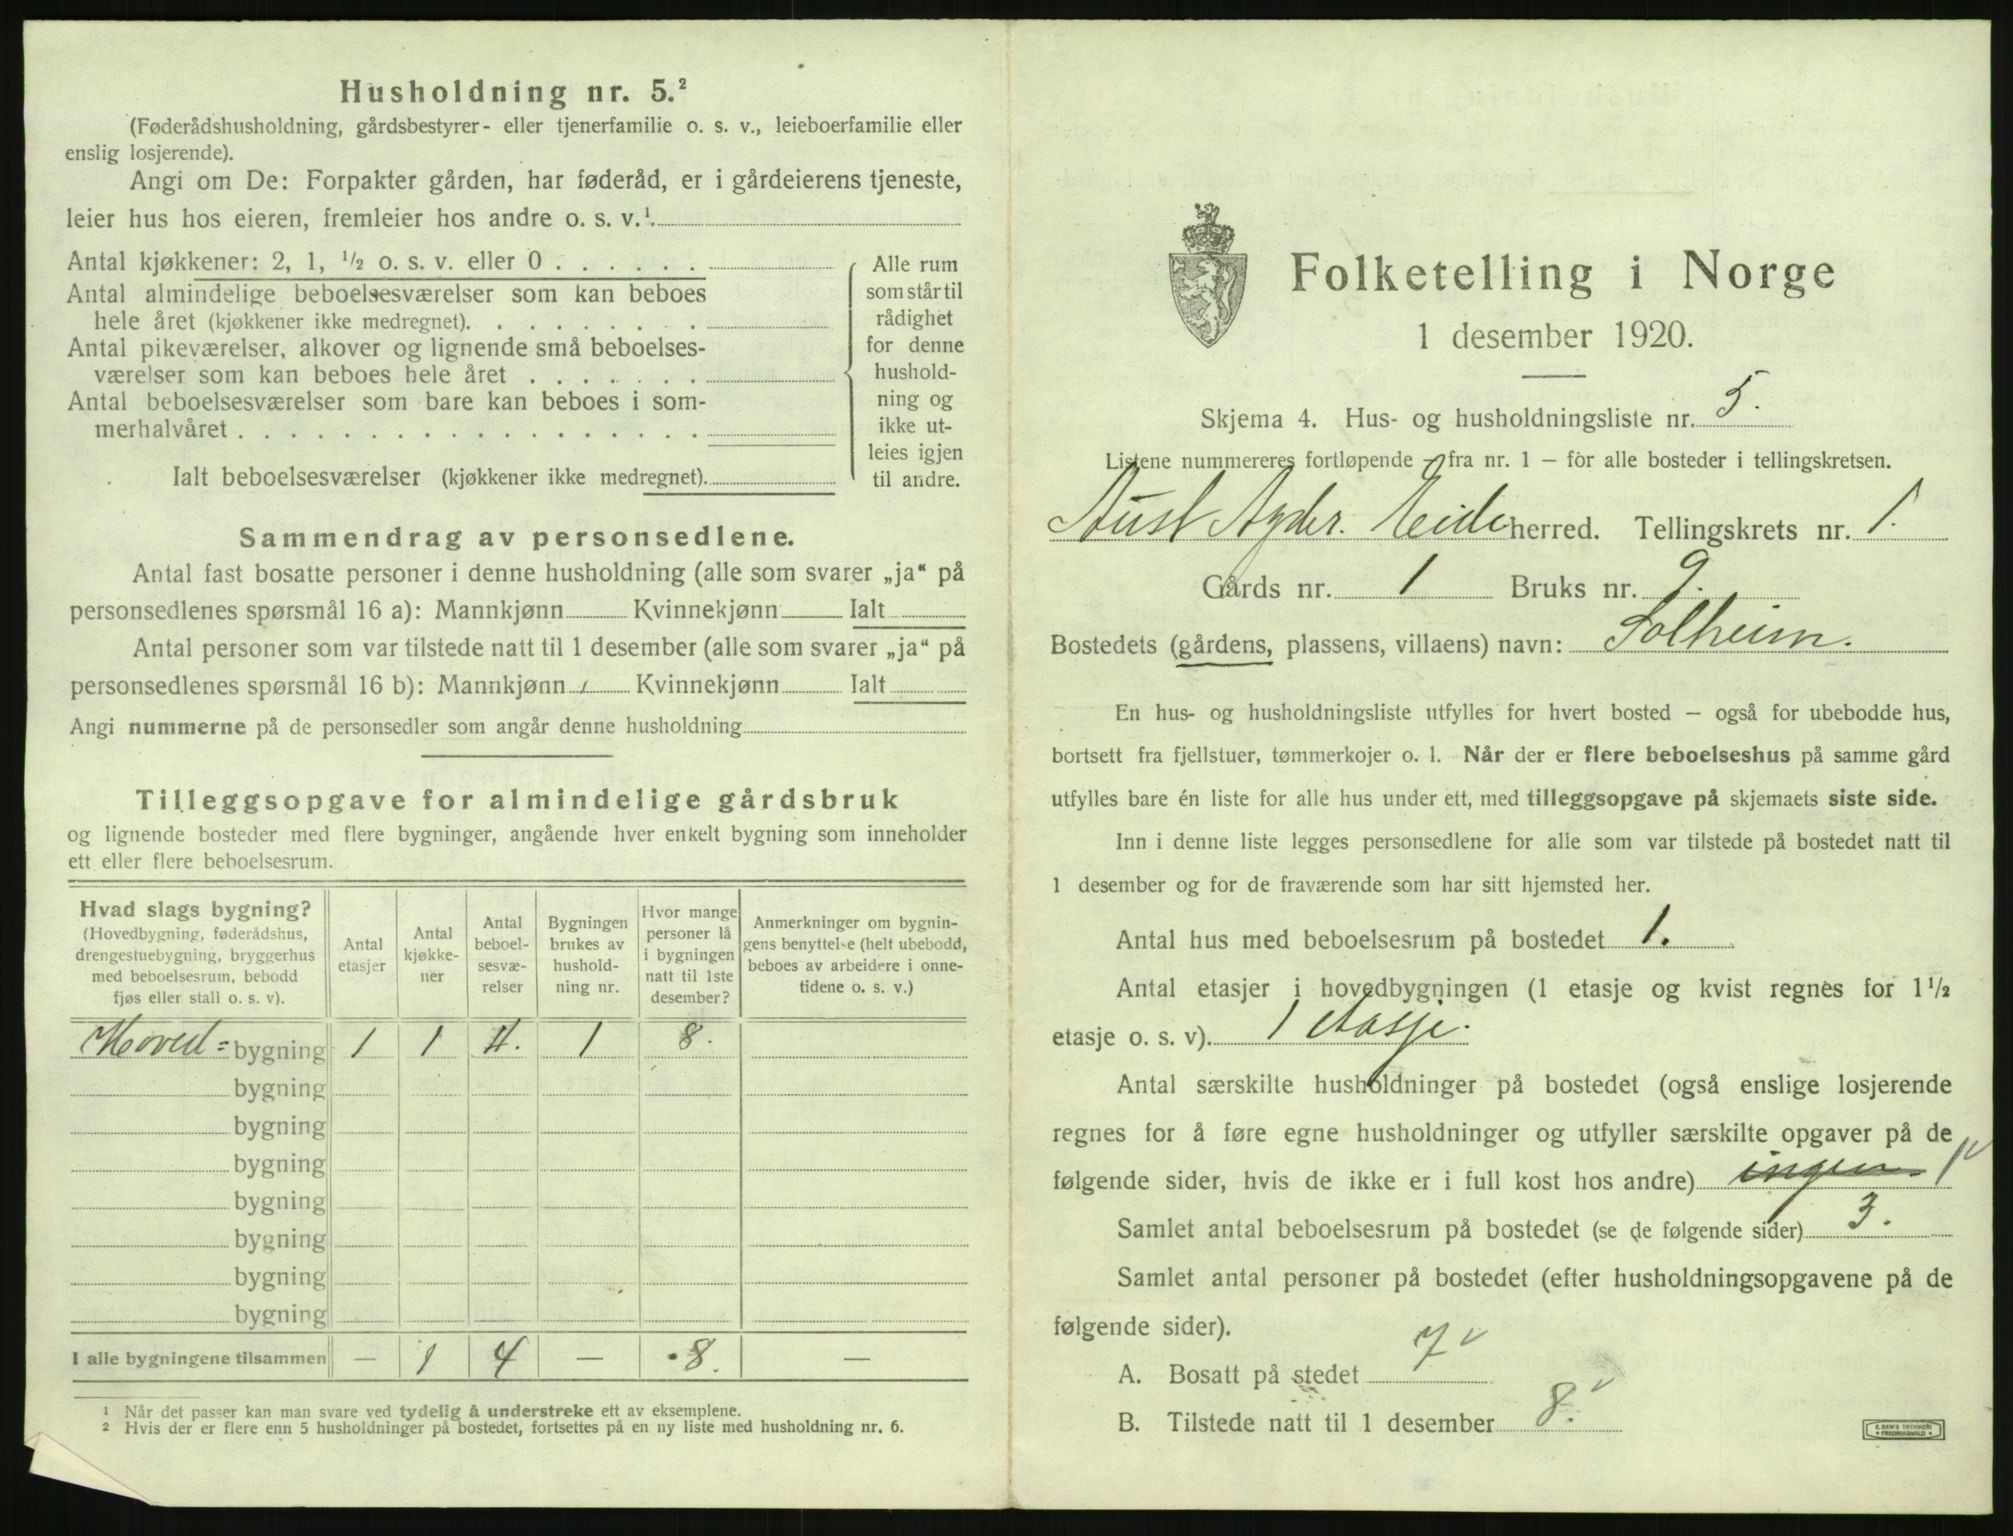 Husholdning nr. 5.²
(Føderådshusholdning, gårdsbestyrer- eller tjenerfamilie o. s. v., leieboerfamilie eller
enslig losjerende).
Angi om De: Forpakter gården, har føderåd, er i gårdeierens tjeneste,
leier hus hos eieren, fremleier hos andre o. s. v.¹
Antal kjøkkener: 2, 1, ½ o. s. v. eller 0 . . . . . .
Antal almindelige beboelsesværelser som kan beboes
hele året (kjøkkener ikke medregnet). . . . . . . . .
Antal pikeværelser, alkover og lignende små beboelses-
værelser som kan beboes hele året . . . . . . .
Antal beboelsesværelser som bare kan beboes i som-
merhalvåret . . . . . . . . . . . . . . . . . .
Ialt beboelsesværelser (kjøkkener ikke medregnet).
Alle rum
som står til
rådighet
for denne
hushold-
ning og
ikke ut-
leies igjen
til andre.
Sammendrag av personsedlene.
Antal fast bosatte personer i denne husholdning (alle som svarer „ja“ på
personsedlenes spørsmål 16 a): Mannkjønn Kvinnekjønn Ialt
Antal personer som var tilstede natt til 1 desember (alle som svarer „ja“ på
personsedlenes spørsmål 16 b): Mannkjønn Kvinnekjønn Ialt
Angi nummerne på de personsedler som angår denne husholdning
Tilleggsopgave for almindelige gårdsbruk
og lignende bosteder med flere bygninger, angående hver enkelt bygning som inneholder
ett eller flere beboelsesrum.
Hvad slags bygning?
(Hovedbygning, føderådshus,
drengestuebygning, bryggerhus
med beboelsesrum, bebodd
fjøs eller stall o. s. v).
Antal
etasjer
Antal
kjøkke-
ner
Antal
beboel-
sesvæ-
relser
Bygningen
brukes av
hushold-
ning nr.
Hvor mange
personer lå
i bygningen
natt til 1ste
desember?
Anmerkninger om bygnin-
gens benyttelse (helt ubebodd,
beboes av arbeidere i onne-
tidene o. s. v.)
Hoved= bygning 1 1 4. 1 8.
bygning
bygning
bygning
bygning
bygning
bygning
bygning
I alle bygningene tilsammen — 1 4 — 8. —
¹ Når det passer kan man svare ved tydelig å understreke ett av eksemplene.
² Hvis der er flere enn 5 husholdninger på bostedet, fortsettes på en ny liste med husholdning nr. 6.
Folketelling i Norge
1 desember 1920.
Skjema 4. Hus- og husholdningsliste nr. 5.
Listene nummereres fortløpende – fra nr. 1 – for alle bosteder i tellingskretsen.
Aust Agder. Eide herred. Tellingskrets nr. 1.
Gårds nr. 1 Bruks nr. 9.
Bostedets (gårdens, plassens, villaens) navn: Solheim.
En hus- og husholdningsliste utfylles for hvert bosted – også for ubebodde hus,
bortsett fra fjellstuer, tømmerkojer o. l. Når der er flere beboelseshus på samme gård
utfylles bare én liste for alle hus under ett, med tilleggsopgave på skjemaets siste side.
Inn i denne liste legges personsedlene for alle som var tilstede på bostedet natt til
1 desember og for de fraværende som har sitt hjemsted her.
Antal hus med beboelsesrum på bostedet 1.
Antal etasjer i hovedbygningen (1 etasje og kvist regnes for 1½
etasje o. s. v). 1 etasje.
Antal særskilte husholdninger på bostedet (også enslige losjerende
regnes for å føre egne husholdninger og utfyller særskilte opgaver på de
følgende sider, hvis de ikke er i full kost hos andre) ingen 1
Samlet antal beboelsesrum på bostedet (se de følgende sider) 3.
Samlet antal personer på bostedet (efter husholdningsopgavene på de
følgende sider).
A. Bosatt på stedet 7
B. Tilstede natt til 1 desember 8.
FREDRIKSHALD